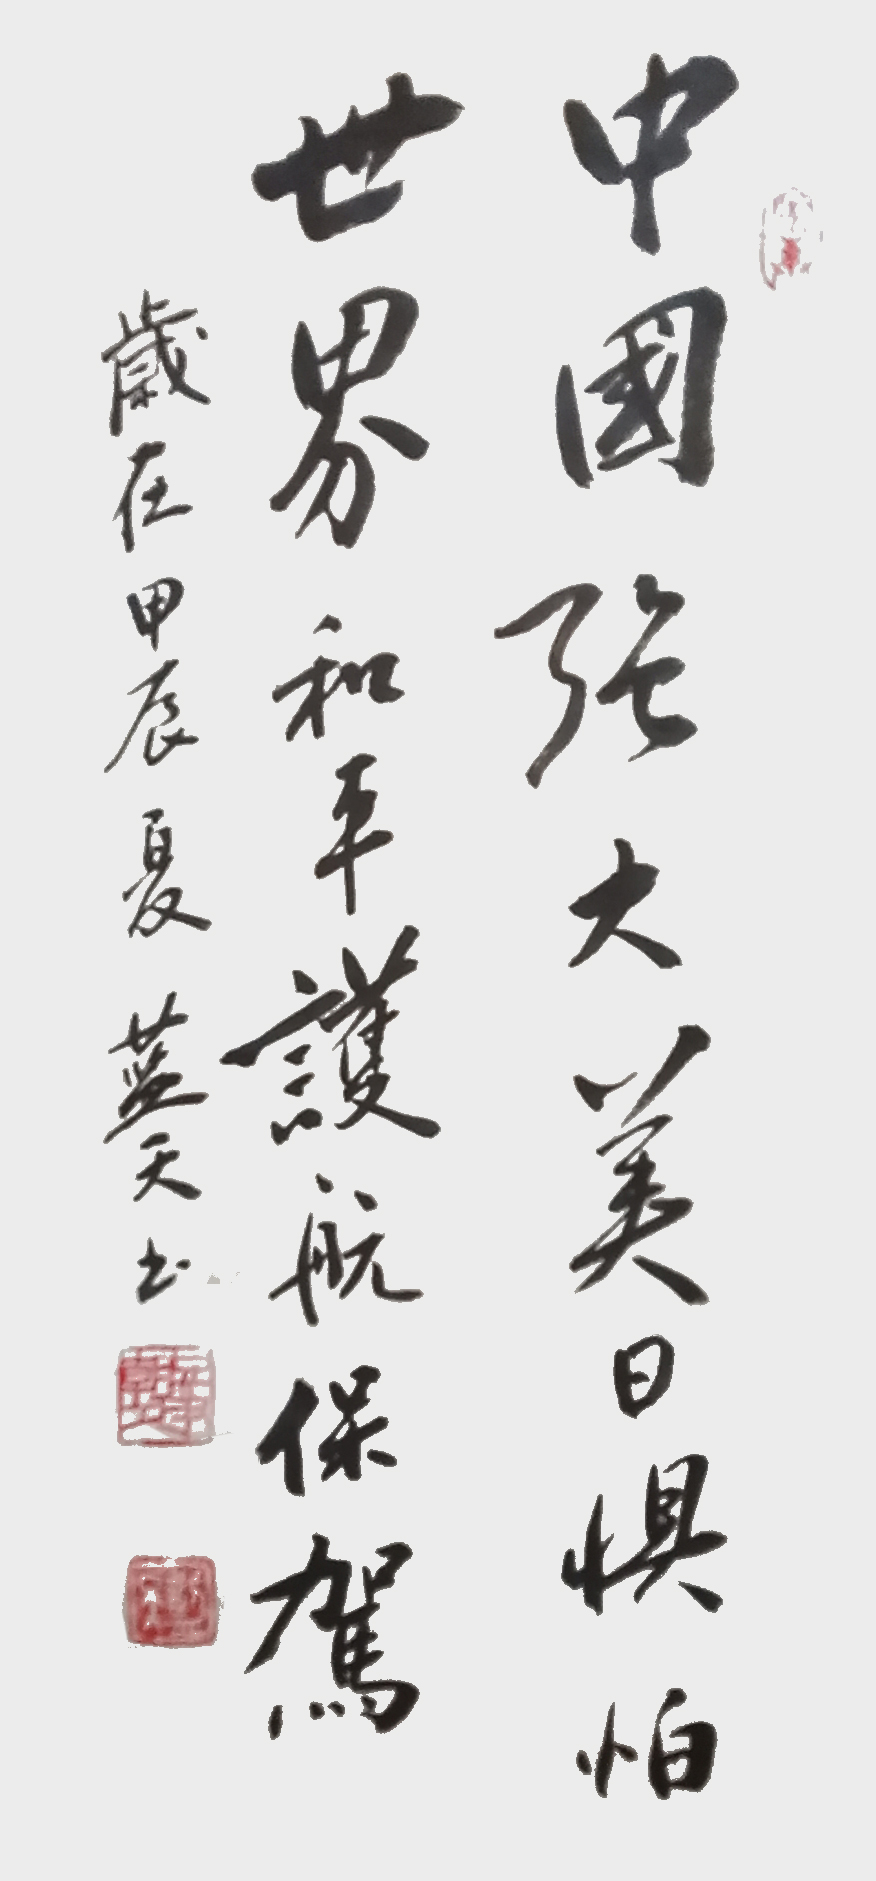 中國强大美日惧怕
世界和平護航保駕
歲在甲辰夏藍天书